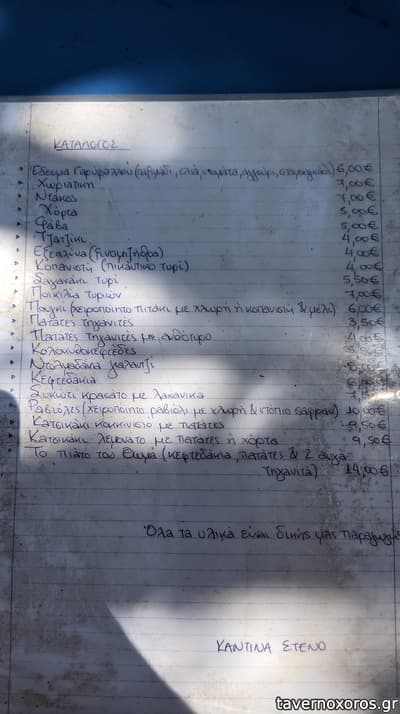 ΚΑΤΑΛΟΓΟΣ
Έδεσμα Γαρύφαλλου ( ελιά, ντομάτα, αγγούρι, ) 6,00€
Χωριάτικη 7,00€
Ντάκος 7,00€
Χόρτα 5,00€
Φάβα 5,00€
Τζατζίκι 4,00€
Εξεαλίνα (ξινομυζήθρα) 4,00€
Κοπανιστή (πικάντικο τυρί) 4,00€
Σαγανάκι τυρί 5,50€
Ποικιλία τυριών 7,00€
Πουγκί (χειροποίητο πιτάκι με χλωρή ή κοπανιστή & μέλι) 6,00€
Πατάτες τηγανιτές 3,50€
Πατάτες τηγανιτές με ανθότυρο
Κολοκυθοκεφτέδες
Ντολμαδάκια γιαλαντζί
Κεφτεδάκια
Συκώτι κρασάτο με λαχανικά
Ραβιόλες (χειροποίητο ραβιόλι με χλωρή & ντόπιο σαφράν) 10,00€
Κατσικάκι κοκκινιστό με πατάτες 9,50€
Κατσικάκι λεμονάτο με πατάτες ή χόρτα 9,50€
Το πιάτο του Θωμά (κεφτεδάκια, πατάτες & 2 αυγά
τηγανιτά) 14,00€
Όλα τα υλικά είναι δικής μας παραγωγής
ΚΑΝΤΙΝΑ ΣΤΕΝΟ
tavernoxoros.gr